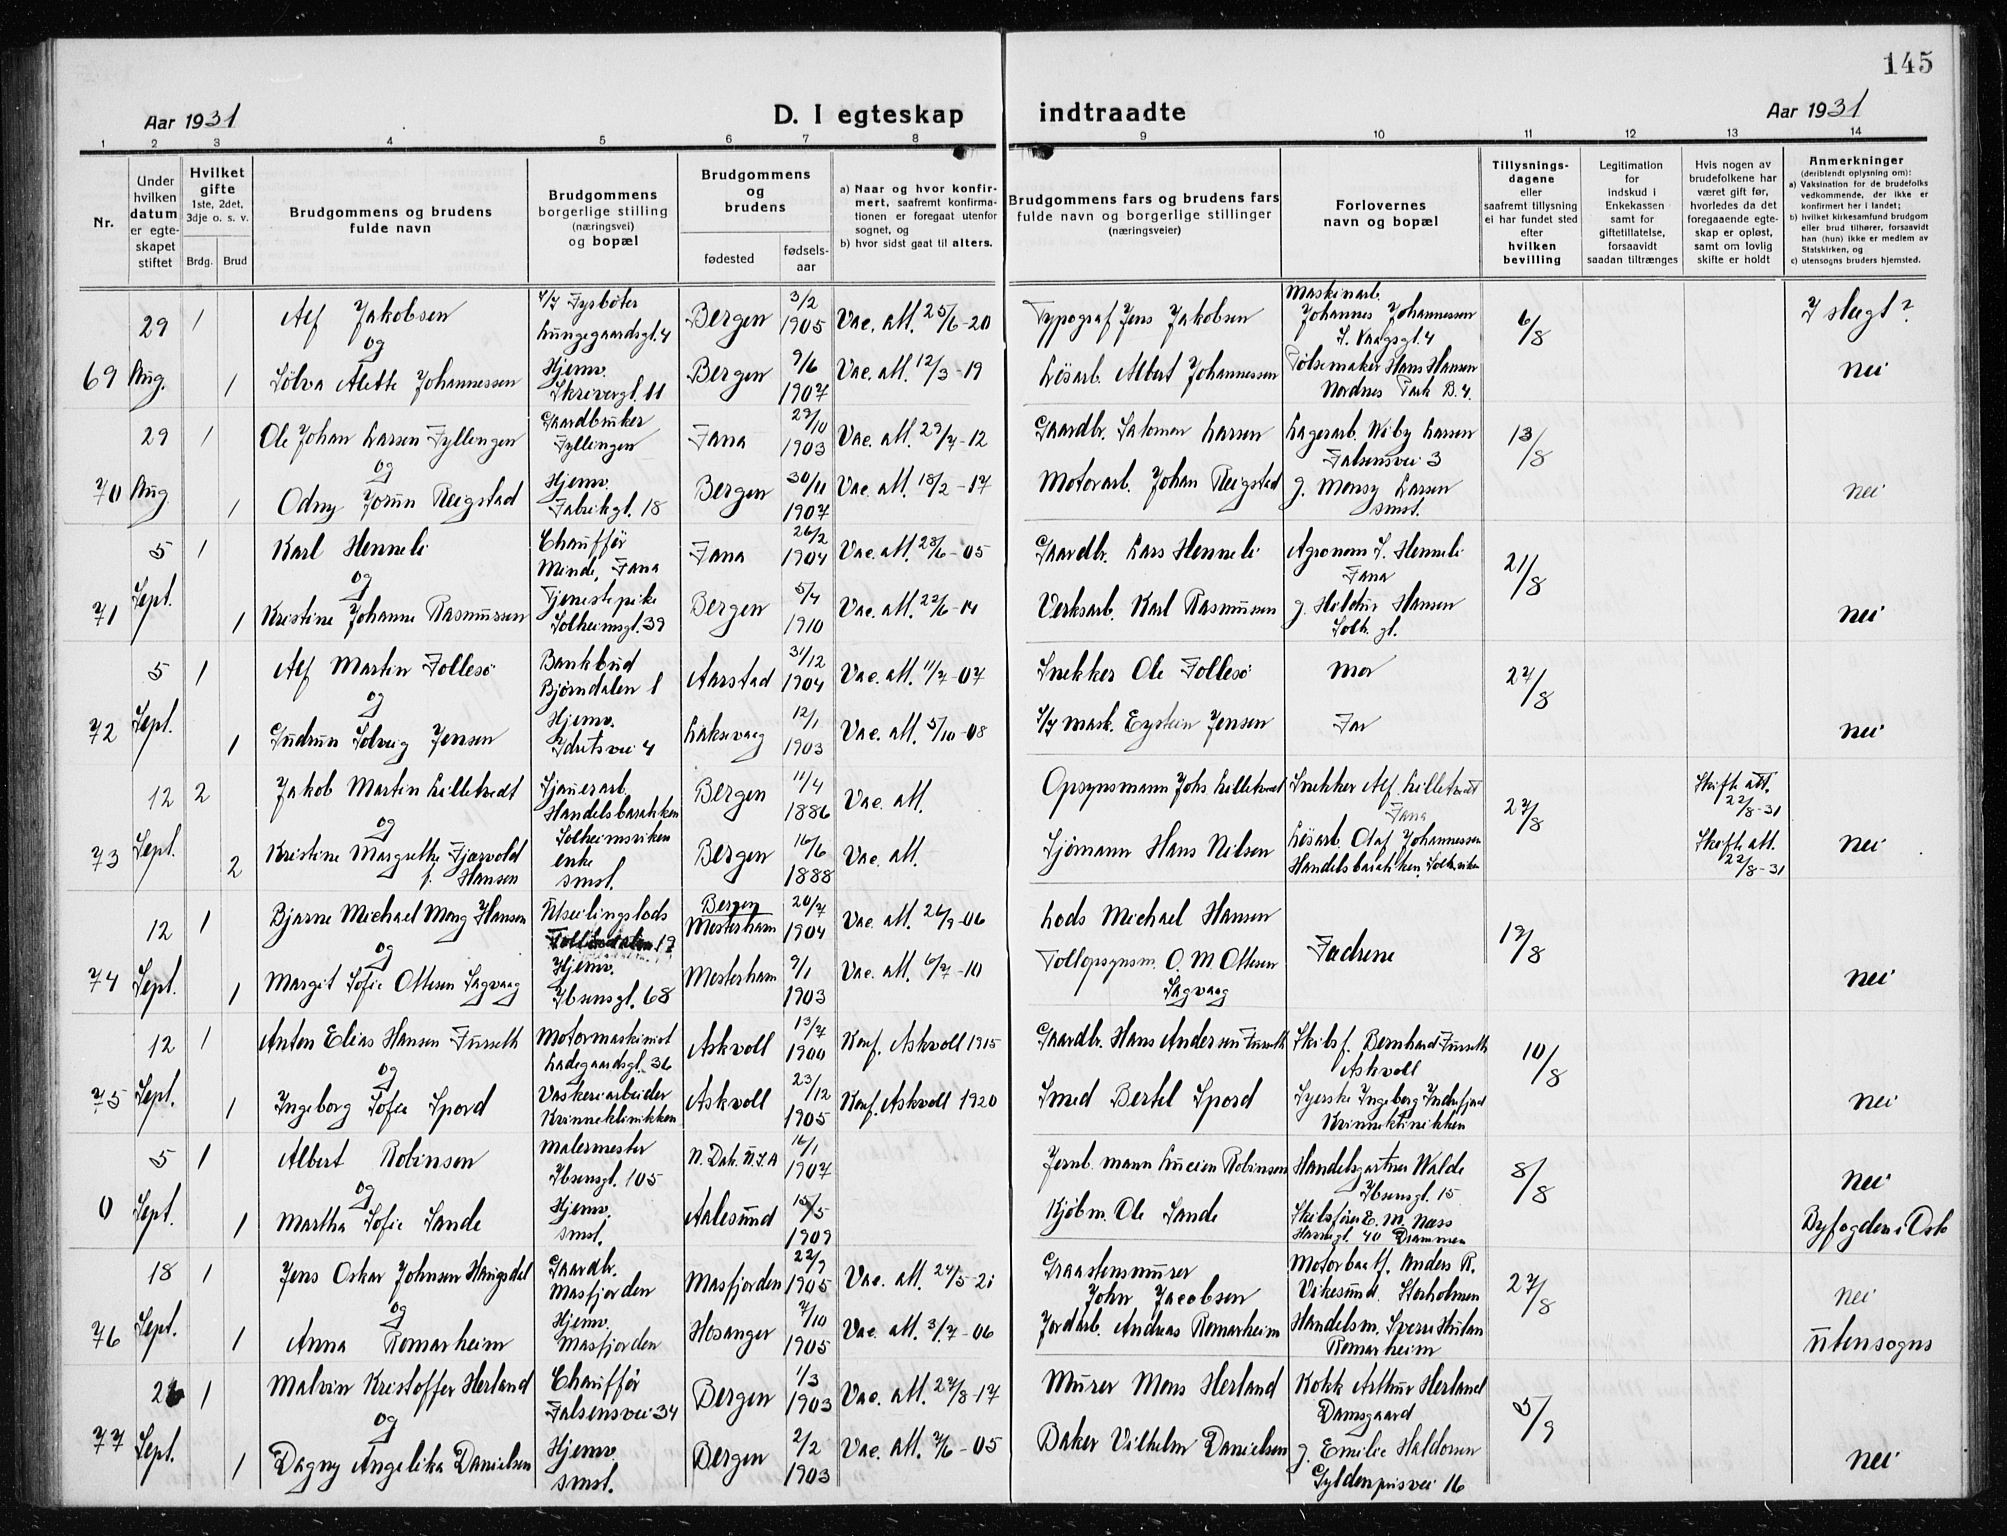 145
Aar 1931
D. I egteskap
indtraadte
Aar 1931
1 2 3 4 5 6 7 8 9 10 11 12 13 14
Nr.
Under
hvilken
datum
er egte-
skapet
stiftet
Hvilket
gifte
1ste, 2det,
3dje o. s. v.
Brdg. Brud
Brudgommens og brudens
fulde navn
Brudgommens
borgerlige stilling
(næringsvei)
og bopæl
Brudgommens
og
brudens
fødested
fødsels-
aar
a) Naar og hvor konfir-
mert, saafremt konfirma-
tionen er foregaat utenfor
sognet, og
b) hvor sidst gaat til alters.
Brudgommens fars og brudens fars
fulde navn og borgerlige stillinger
(næringsveier)
Forlovernes
navn og bopæl
Tillysnings-
dagene
eller
saafremt tillysning
ei har fundet sted
efter
hvilken
bevilling
Legitimation
for
indskud i
Enkekassen
samt for
giftetillatelse,
forsaavidt
saadan tiltrænges
Hvis nogen av
brudefolkene har
været gift før,
hvorledes da det
foregaaende egte-
skap er opløst,
samt om lovlig
skifte er holdt
Anmerkninger
(deriblendt oplysning om):
a) Vaksination for de brudefolks
vedkommende, der ikke er
konfirmert her i landet;
b) hvilket kirkesamfund brudgom
eller brud tilhører, forsaavidt
han (hun) ikke er medlem av
Statskirken, og
c) utensogns bruders hjemsted.
69 29 Aug. 1 Alf Jakobsen Fyrbøter Lungegaardsgt. 4 Bergen 3/2 1905 Vac. att. 25/6-20 Typograf Jens Jakobsen Maskinarb. Johannes Johannessen 6/8 I slegt?
og
1 Sølva Alette Johannessen Hjemv. Skrivergt. 11 Bergen 9/6 1907 Vac. att. 12/3-19 Løsarb. Albert Johannessen Pølsemaker Hans Hansen Nordnes Park B. 4. nei
70 29 Aug. 1 Ole Johan Larsen Fyllingen Gaardbruker Fyllingen Fana 1903 Vac. att. 29/7-12 Gaardbr. Salomon Larsen Lagerarb. Wiby Larsen Falsensvei 3 13/8
og
1 Odny Jorun Reigstad Hjemv. Fabrikgt. 18 Bergen 30/11 1907 Vac. att. 18/2-17 Motorarb. Johan Reigstad g. Monsy Larsen smst. nei
71 5 Sept. 1 Karl Henneli Chauffør Minde, Fana Fana 26/2 1904 Vac. att. 23/6-05 Gaardbr. Lars Henneli Agronom S. Henneli Fana 21/8
og
1 Kristine Johanne Rasmussen Tjenestepike Solheimsgt. 39 Bergen 5/4 1910 Vac. att. 22/6-14 Verksarb. Karl Rasmussen g. Hildur Hansen Solh. gt. nei
72 5 Sept. 1 Alf Martin Follesø Bankbud Bjørndalen 1 Aarstad 31/12 1904 Vac. att. 11/7-07 Snekker Ole Follesø Mor 27/8
og
1 Gudrun Solveig Jensen Hjemv. Idretsvei 4 Laksevaag 12/1 1903 Vac. att. 5/10-08 mask. Eystein Jensen Far nei
73 12 Sept. 2 Jakob Martin Lilletvedt Sjauerarb. Handelsbarakken Bergen 11/4 1886 Vac. att. Opsynsmann Johs. Lilletvedt Snekker Alf Lilletvedt Fana 27/8 Skifte att. 22/8-31
og
2 Kristine Margrethe Fjærvold f. Hansen Solheimsviken enke smst. Bergen 16/6 1888 Vac. att. Sjømann Hans Nilsen Løsarb. Olaf Johannessen Handelsbarakken, Solh.viken Skifte att. 22/8-31 nei
74 12 Sept. 1 Bjarne Michael Mong Hansen Utseilingslods 19 Bergen Mosterham 20/7 1904 Vac. att. 26/9-06 Lods Michael Hansen Fædrene 19/8
og
1 Margit Sofie Ottesen Sagvaag Hjemv. Ibsensgt. 68 Mosterham 9/1 1903 Vac. att. 6/7-10 Tollopsynsm. O. M. Ottesen Sagvaag nei
75 12 Sept. 1 Anton Elias Hansen Furseth Motormaskinist Ladegaardsgt. 36 Askvoll 13/7 1900 Konf. Askvoll 1915 Gaardbr. Hans Andersen Furseth Skibsf. Bernhard Furseth Askvoll 10/8
og
1 Ingeborg Sofie Spord Vaskeriarbeider Kvinneklinikken Askvoll 23/12 1905 Konf. Askvoll 1920 Smed Bertel Spord Syerske Ingeborg Indrefjord Kvinneklinikken nei
0 5 Sept. 1 Albert Robinson Malermester Ibsensgt. 105 N. Dak. U.S.A 16/1 1907 Jernb. mann Lucien Robinson Handelsgartner Walde Ibsensgt. 15 8/8 nei
og
1 Martha Sofie Sande Hjemv. smst. Aalesund 15/5 1909 Kjøbm. Ole Sande Skibsfører E. M. Næss Havnegt. 40 Drammen Byfogden i Oslo
76 18 Sept. 1 Jens Oskar Johnsen Haugsdal Gaardbr. Masfjorden Masfjorden 22/9 1905 Vac. att. 24/5-21 Graastensmurer John Jacobsen Motorbaatf. Anders R. Vikesund. Storholmen 27/8 nei
og
1 Anna Romarheim Hjemv. Masfjorden Hosanger 7/10 1905 Vac. att. 3/7-06 Jordarb. Andreas Romarheim Handelsm. Sverre Hulan Romarheim utensogns
77 26 Sept. 1 Malvin Kristoffer Herland Chauffør Falsensvei 34 Bergen 1/3 1903 Vac. att. 27/8-17 Murer Mons Herland Kokk Arthur Herland Damsgaard 5/9
og
1 Dagny Angelika Danielsen Hjemv. smst. Bergen 2/2 1903 Vac. att. 7/6-05 Baker Vilhelm Danielsen g. Emilie Haldorsen Gyldenprisvei 16 nei